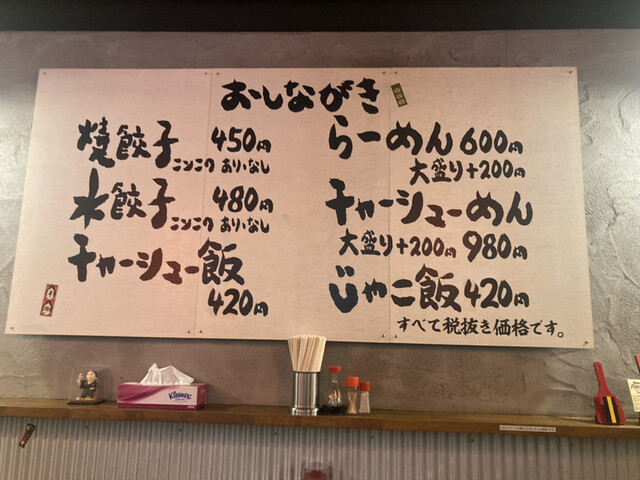 おしながき
焼餃子 450円
ニンニクの あり・なし
水餃子 480円
ニンニクの あり・なし
チャーシュー飯
420円
らーめん 600円
大盛り+200円
チャーシューめん
大盛り+200円 980円
じゃこ飯 420円
すべて税抜き価格です。
Kleenex